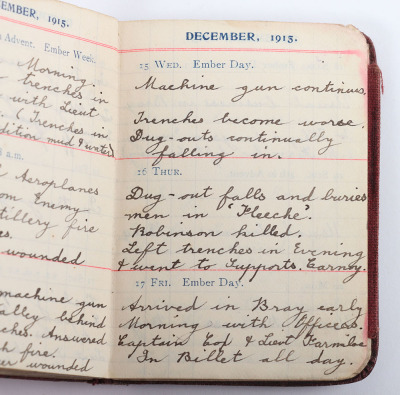 EMBER, 1915.
Advent. Ember Week.
Morning.
trenches in
with Lieut
(Trenches in
dition mud & water)
a.m.
Aeroplanes
om Enemy
tillery fire
es.
wounded
machine gun
alley behind
ches. Answered
h fire.
er wounded
DECEMBER, 1915.
15 WED. Ember Day.
Machine gun continues.
Trenches become worse.
Dug-outs continually
falling in.
16 THUR.
Dug-out falls and buries
men in "Fleeche".
Robinson killed.
Left trenches in Evening
& went to Supports. Carnoy.
17 FRI. Ember Day.
Arrived in Bray early
Morning with Officers.
Captain Cox & Lieut
In Billet all day.